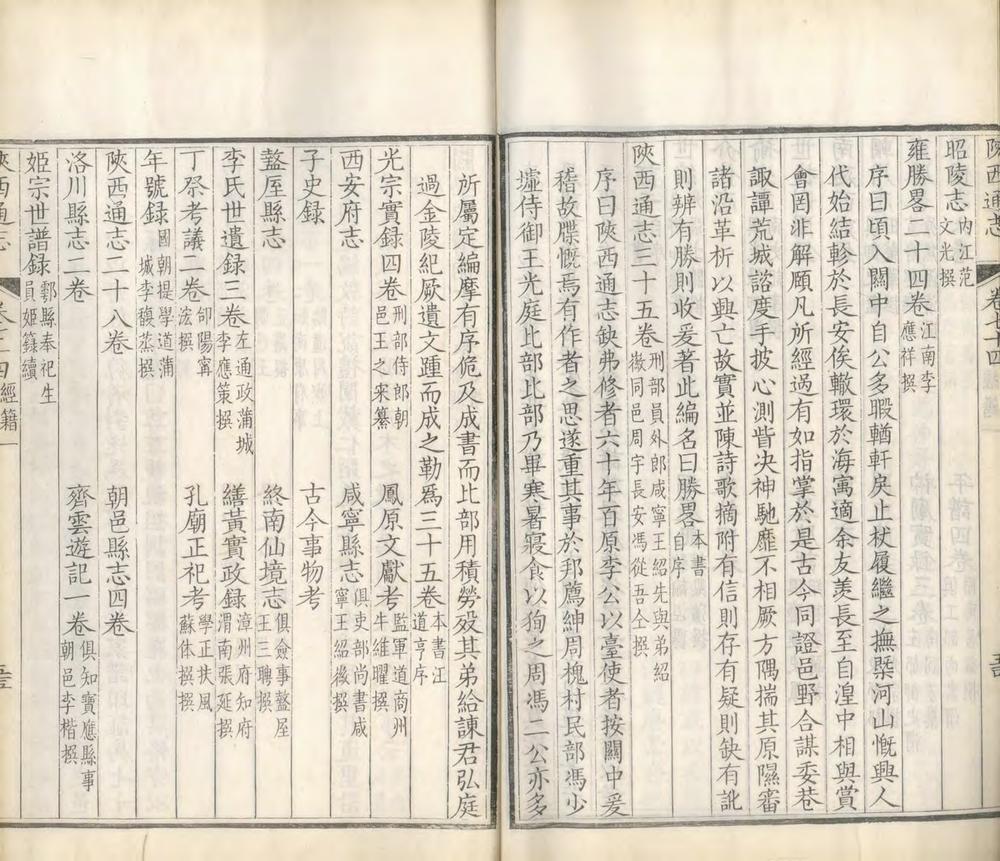 陝西通志 卷七十四
昭陵志 内江范文光撰
雍勝畧二十四卷 江南李應祥撰
序曰頃入關中自公多暇輶軒戾止杖履繼之撫槩河山慨興人
代始結軫於長安俟轍環於海寓適余友羨長至自湟中相與賞
會罔非解頤凡所經過有如指掌於是古今同證邑野合謀委巷
諏譚荒城諮度手披心測眥决神馳靡不相厥方隅揣其原隰審
諸沿革析以興亡故實並陳詩歌摘附有信則存有疑則缺有訛
則辨有勝則收爰著此編名曰勝畧 本書自序
陝西通志三十五卷 刑部員外郎咸寧王紹先與弟紹徽同邑周宇長安馮從吾仝撰
序曰陝西通志缺弗修者六十年百原李公以臺使者按關中爰
稽故牒慨焉有作者之思遂重其事於邦薦紳周槐村民部馮少
墟侍御王光庭比部比部乃畢寒暑寢食以狥之周馮二公亦多
所屬定編摩有序佹及成書而比部用積勞歿其弟給諫君弘庭
過金陵紀厥遺文踵而成之勒爲三十五卷 本書江道亨序
光宗實録四卷 刑部侍郎朝邑王之寀纂 鳳原文獻考 監軍道商州牛維曜撰
西安府志 咸寧縣志 俱吏部尚書咸寧王紹徽撰
子史録 古今事物考
盩厔縣志 終南仙境志 俱僉事盩厔王三聘撰
李氏世遺録三卷 左通政蒲城李應策撰 繕黃實政録 漳州府知府渭南張延撰
丁祭考議二卷 郃陽甯浤撰 孔廟正祀考 學正扶風蘇休撰
年號録 國朝提學道蒲城李馥蒸撰
陝西通志二十八卷 朝邑縣志四卷
洛川縣志二卷 齊雲遊記一卷 俱知寶應縣事朝邑李楷撰
姬宗世譜録 鄠縣奉祀生員姬籙續
陝西通志 卷七十四 經籍一